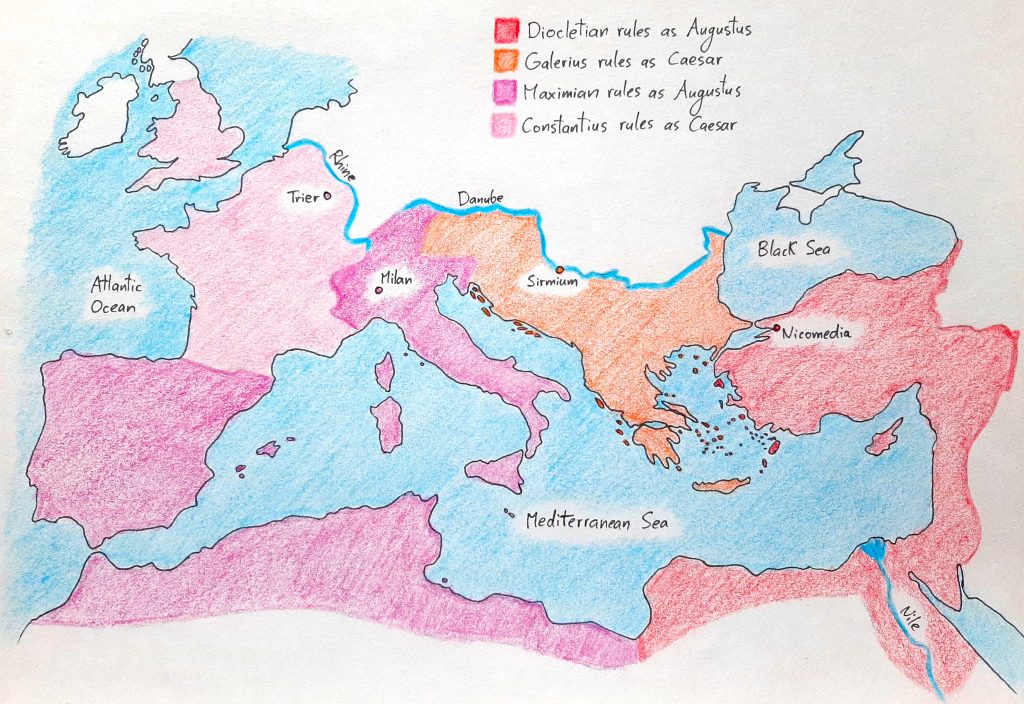 Diocletian rules as Augustus
Galerius rules as Caesar
Maximian rules as Augustus
Constantius rules as Caesar
Rhine
Trier
Danube
Black Sea
Atlantic
Ocean
Milan
Sirmium
Nicomedia
Mediterranean Sea
Nile